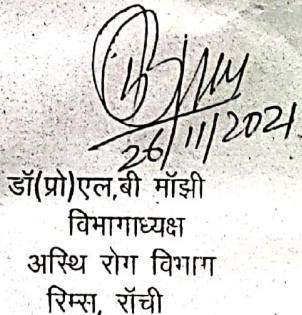 26/11/2021
डॉ(प्रो)एल,बी मॉझी
विभागाध्यक्ष
अस्थि रोग विभाग
रिम्स, रॉची